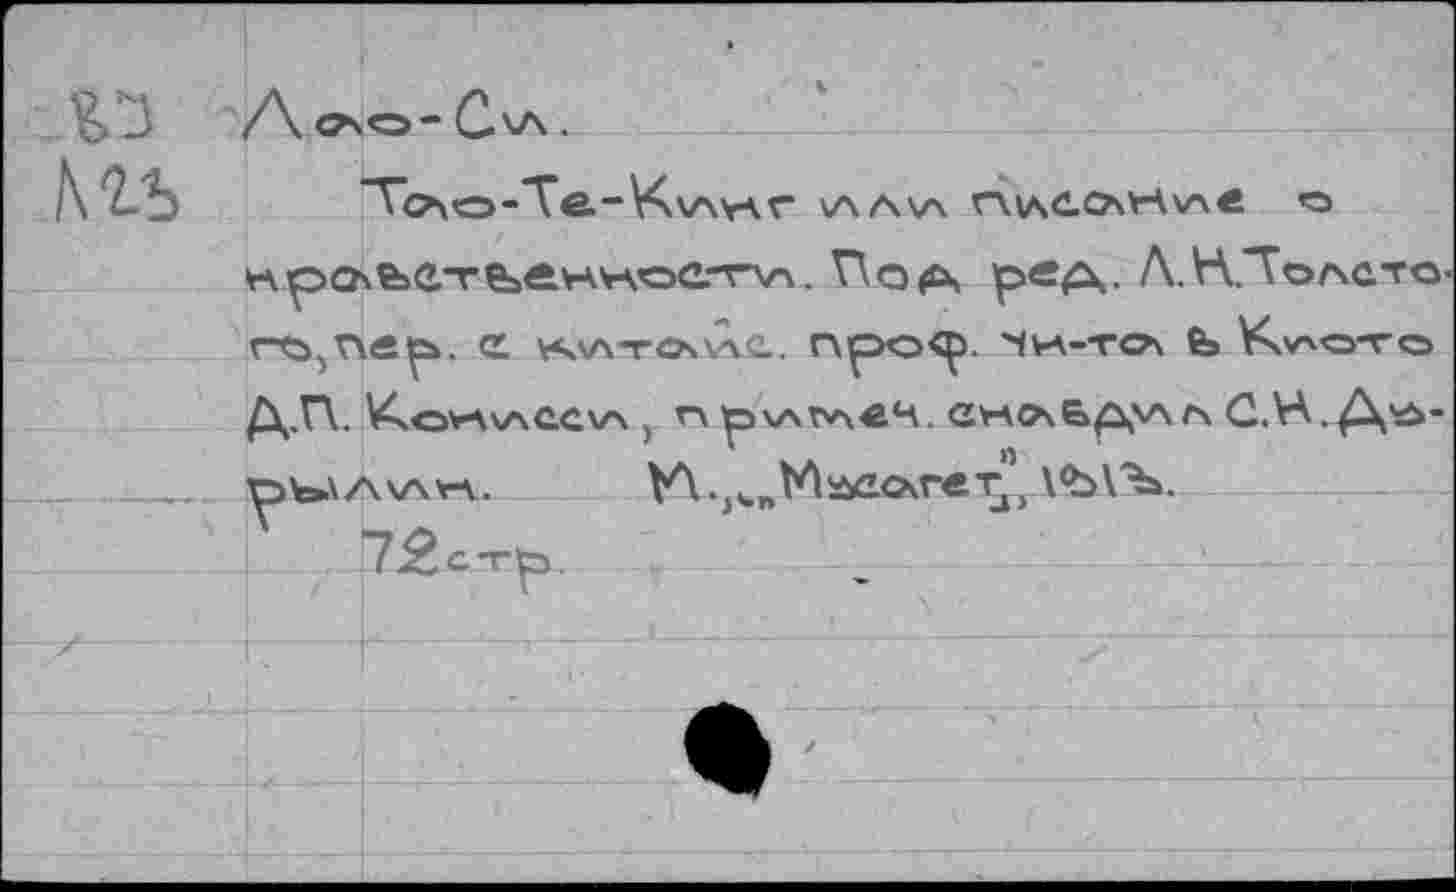 Лао-Си.
Тао-Те-Кинг или писание о
нравственности. Под ред. Л.Н.Толсто
го, пер. с китайс. проф.
в Киото
Д.П. Конисси, примеч. снабдил С.Н.Ды-
рылин. М., „Мусагет", 1913.
72стр.